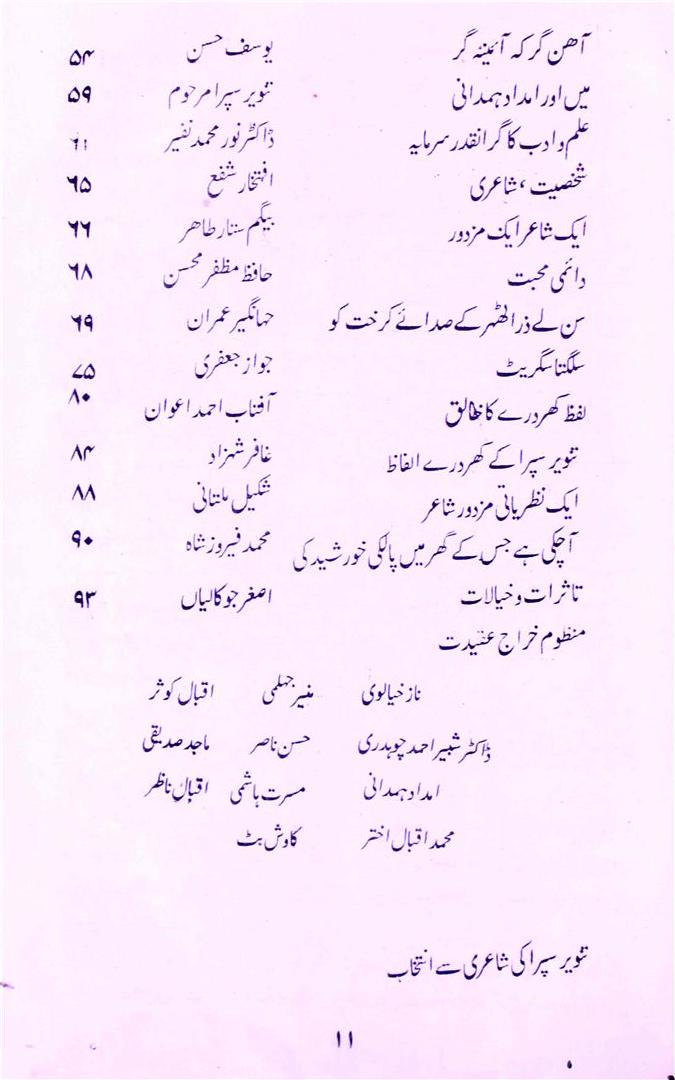 آھن گر کہ آئینہ گر یوسف حسن ۵۴
میں اور امداد ہمدانی تنویر سپرا مرحوم ۵۹
علم و ادب کا گرانقدر سرمایہ ڈاکٹر نور محمد نفیر ۶۱
شخصیت، شاعری افتخار شفع ۶۵
ایک شاعر ایک مزدور بیگم ستار طاھر ۶۶
دائمی محبت حافظ مظفر محسن ۶۸
سن لے ذرا ٹھہر کے صدائے کرخت کو جہانگیر عمران ۶۹
سلگتا سگریٹ جواز جعفری ۷۵
لفظ کھردرے کا خالق آفتاب احمد اعوان ۸۰
تنویر سپرا کے کھردرے الفاظ غافر شہزاد ۸۴
ایک نظریاتی مزدور شاعر شکیل ملتانی ۸۸
آچکی ہے جس کے گھر میں پالکی خورشید کی محمد فیروز شاہ ۹۰
تاثرات و خیالات اصغر جوکالیاں ۹۳
منظوم خراج عقیدت
ناز خیالوی منیر جہلمی اقبال کوثر
ڈاکٹر شبیر احمد چوہدری حسن ناصر ماجد صدیقی
امداد ہمدانی مسرت ہاشمی اقبال ناظر
محمد اقبال اختر کاوش بٹ
تنویر سپرا کی شاعری سے انتخاب
۱۱